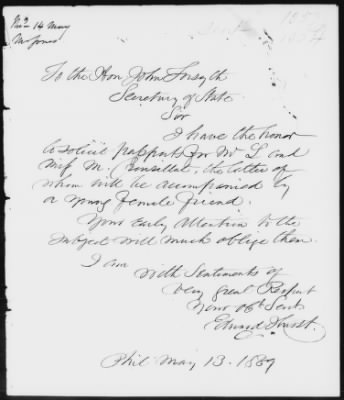 14 May
Mr Jones
To the Hon John Forsyth
Secretary of State
Sir
I have the honor
to solicit passports for Mr L and
Miss M. the latter of
whom will be accompanied by
a young female friend.
Your early attention to the
subject will much oblige them.
I am
With Sentiments of
very great Respect
Your ob^t Serv^t
Edward
Phil May 13. 1839